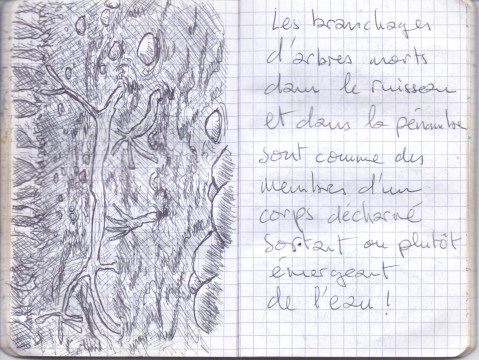 Les branchages
d'arbres morts
dans le ruisseau
et dans la pénombre
sont comme des
membres d'un
corps décharné
sortant ou plutôt
émergeant
de l'eau !